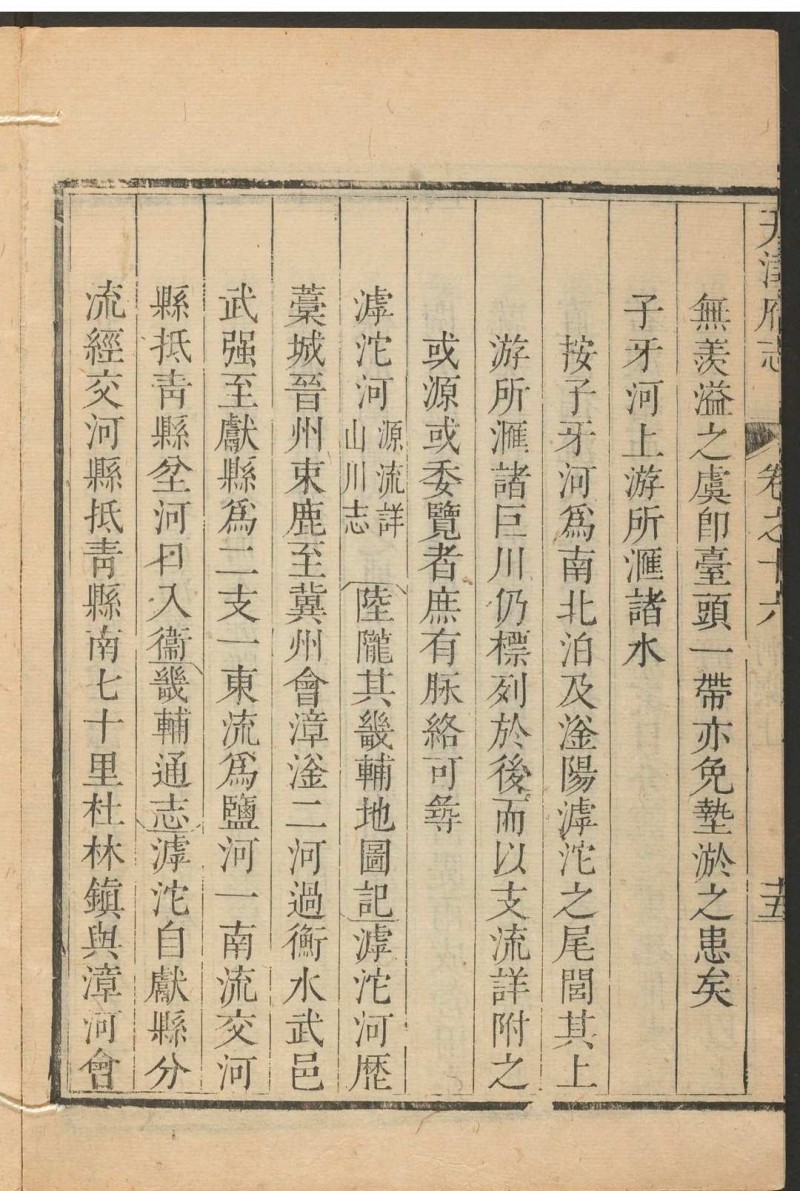 天津府志
卷之十六
十五
無羨溢之虞卽臺頭一帶亦免墊淤之患矣
子牙河上游所滙諸水
按子牙河爲南北泊及滏陽滹沱之尾閭其上
游所滙諸巨川仍標列於後而以支流詳附之
或源或委覽者庶有脉絡可尋
滹沱河源流詳山川志陸隴其畿輔地圖記滹沱河歷
藁城晉州束鹿至冀州會漳滏二河過衡水武邑
武强至獻縣爲二支一東流爲鹽河一南流交河
縣抵靑縣坌河口入衞畿輔通志滹沱自獻縣分
流經交河縣抵靑縣南七十里杜林鎭與漳河會